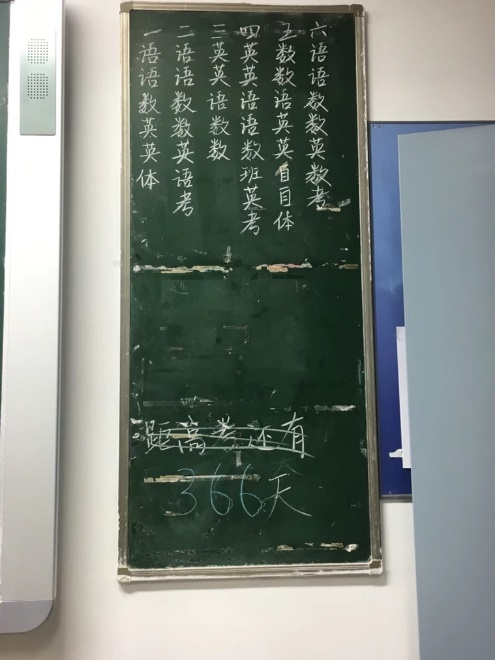 一语语数英英体
二语语数数英语考
三英英语数数
四英英语语数班英考
五数数语英英自自体
六语语数数英数考
距高考还有
366天